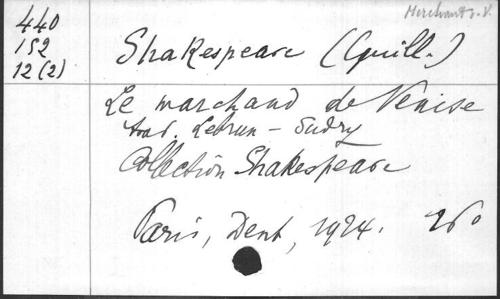 Merchant o. V.
440
152
12 (2)
Shakespeare (Guill.)
Le marchand de Venise
trad. Lebrun - Sudry
Collection Shakespeare
Paris, Dent, 1924.